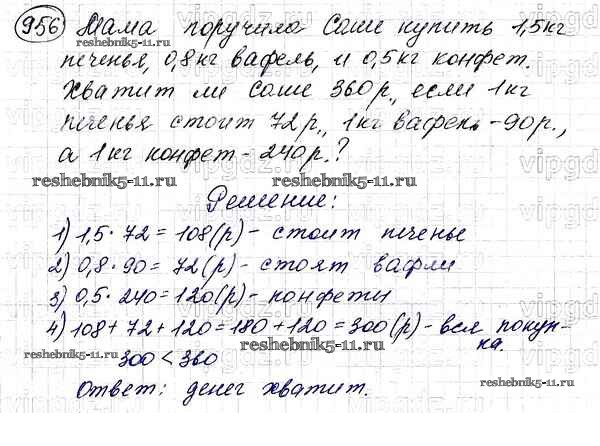 956 Мама поручила Саше купить 1,5кг
reshebnik5-11.ru
печенья, 0,8кг вафель, и 0,5кг конфет.
Хватит ли Саше 360р., если 1кг
печенья стоит 72р., 1кг вафель-90р.,
а 1кг конфет-240р.?
reshebnik5-11.ru
Решение:
1) 1,5·72=108(р)-стоит печенье
2) 0,8·90=72(р)-стоят вафли
3) 0,5·240=120(р)-конфеты
4) 108+72+120=180+120=300(р)-вся покуп-
ка.
reshebnik5-11.ru
reshebnik5-11.ru
300<360
Ответ: денег хватит.
reshebnik5-11.ru